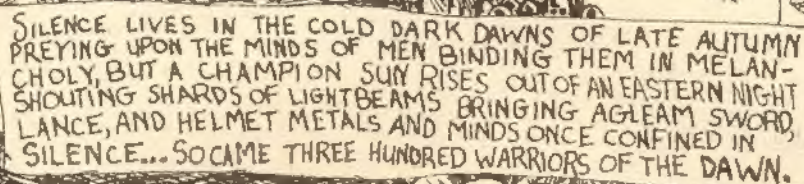 SILENCE LIVES IN THE COLD DARK DAWNS OF LATE AUTUMN
PREYING UPON THE MINDS OF MEN BINDING THEM IN MELAN-
CHOLY, BUT A CHAMPION SUN RISES OUT OF AN EASTERN NIGHT
SHOUTING SHARDS OF LIGHTBEAMS BRINGING AGLEAM SWORD,
LANCE, AND HELMET METALS AND MINDS ONCE CONFINED IN
SILENCE... SO CAME THREE HUNDRED WARRIORS OF THE DAWN.